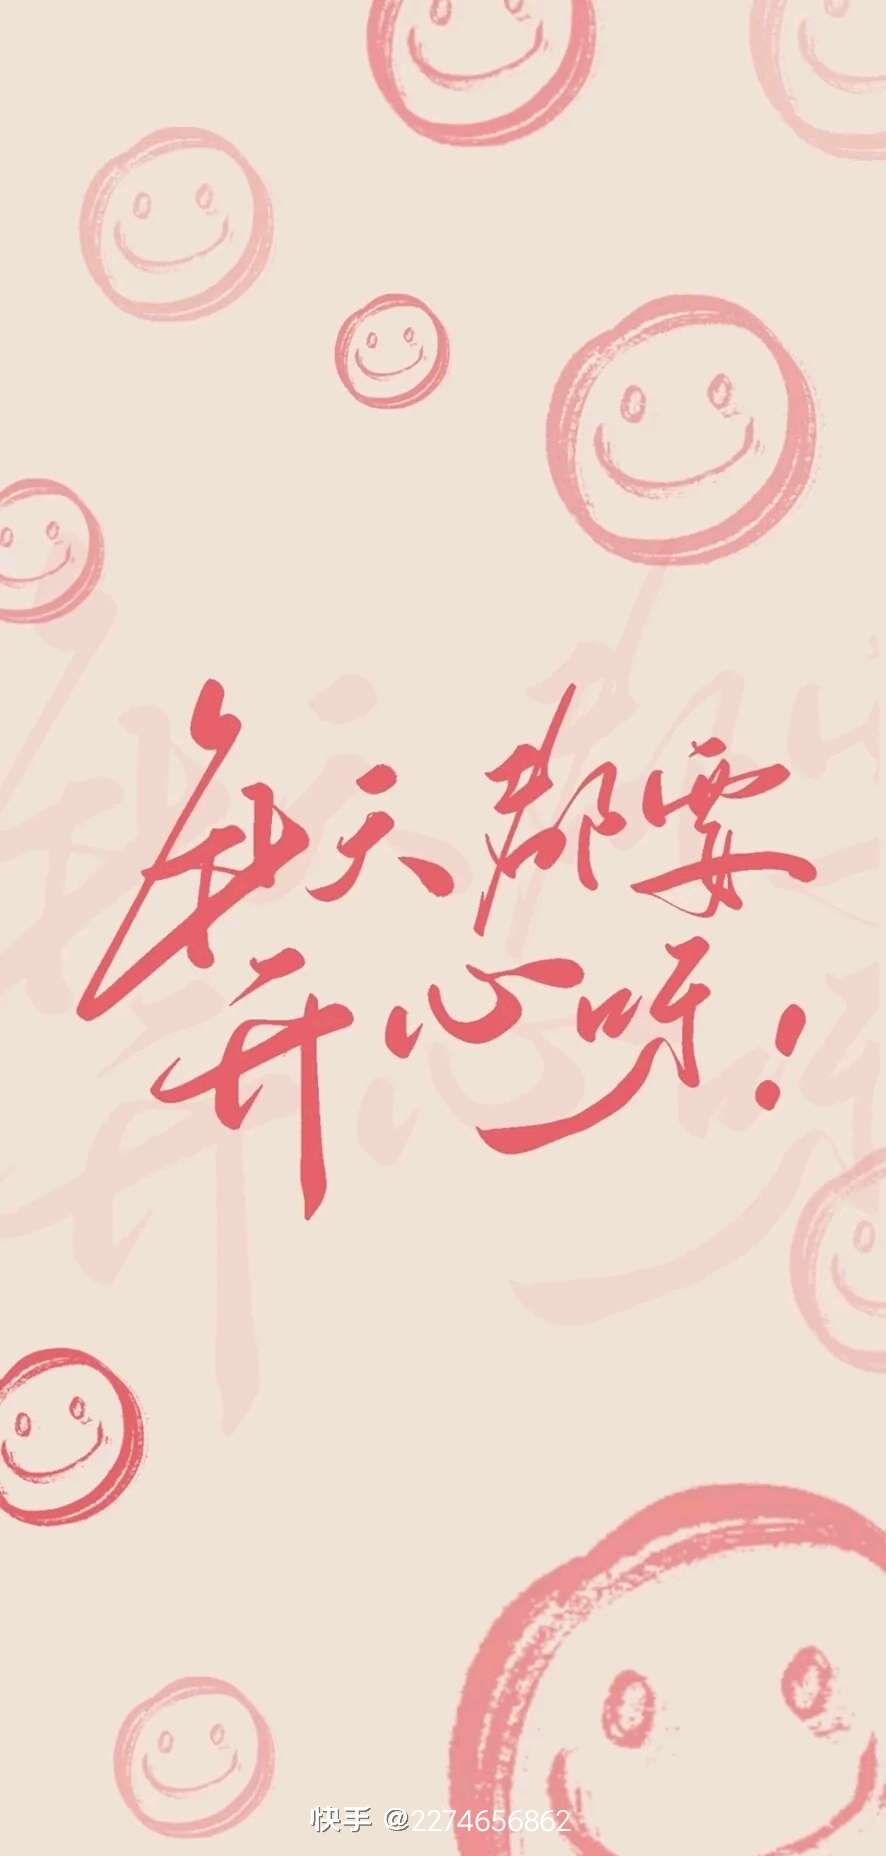 每天都要
开心呀！
快手 @2274656862